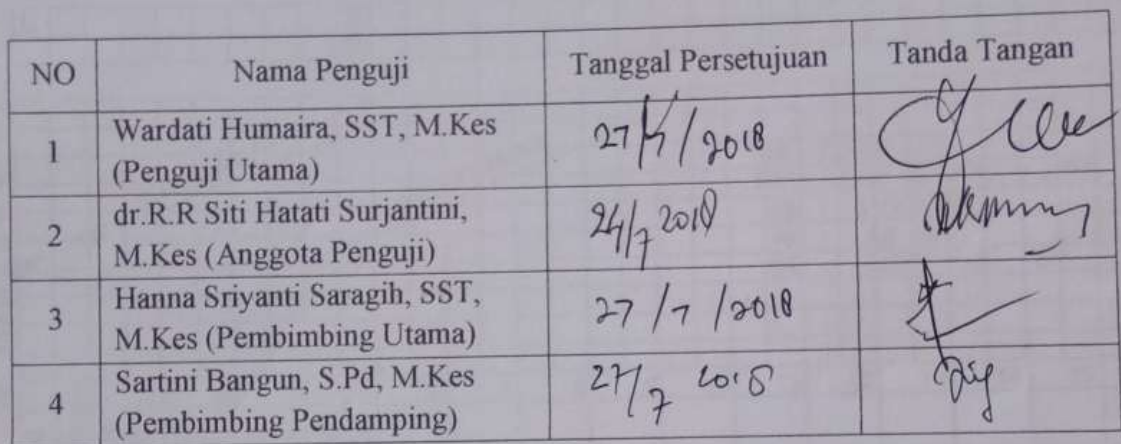 NO Nama Penguji Tanggal Persetujuan Tanda Tangan
1 Wardati Humaira, SST, M.Kes
(Penguji Utama) 27/ /2018
2 dr.R.R Siti Hatati Surjantini,
M.Kes (Anggota Penguji) 24/7 2018
3 Hanna Sriyanti Saragih, SST,
M.Kes (Pembimbing Utama) 27/7/2018
4 Sartini Bangun, S.Pd, M.Kes
(Pembimbing Pendamping) 27/7 2018